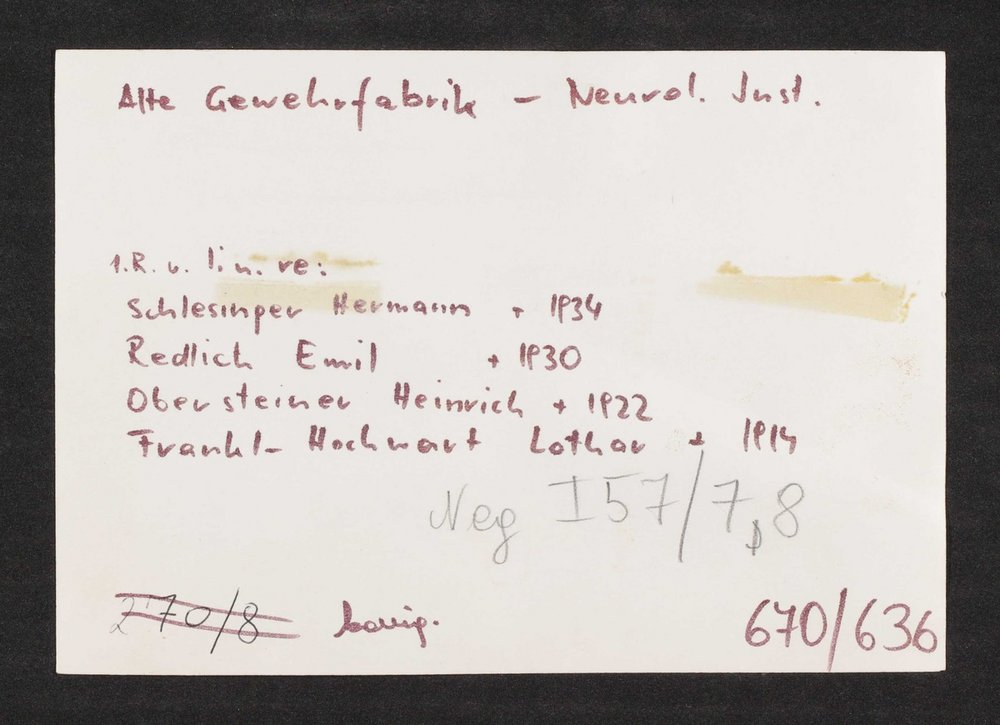 Alte Gewehrfabrik - Neurol. Inst.
1.R. v. li. n. re:
Schlesinger Hermann + 1934
Redlich Emil + 1930
Obersteiner Heinrich + 1922
Frankl-Hochwart Lothar + 1914
Neg I57/7,8
270/8
670/636